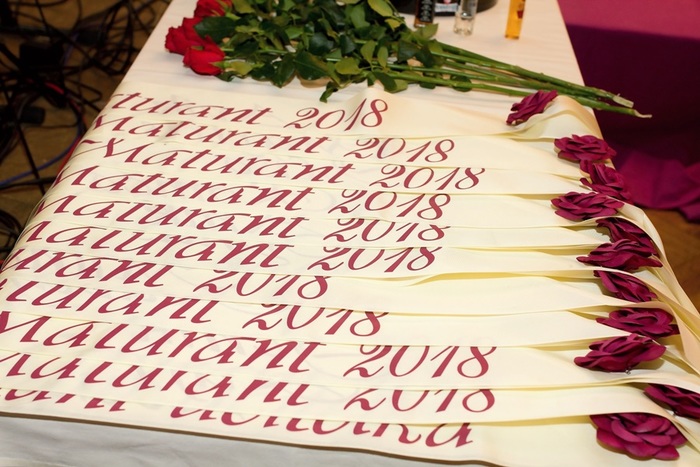 turant 2018
Maturant 2018
Maturant 2018
Maturant 2018
Maturant 2018
Maturant 2018
urant 2018
aturant 2018
Maturant 2018
Maturant 2018